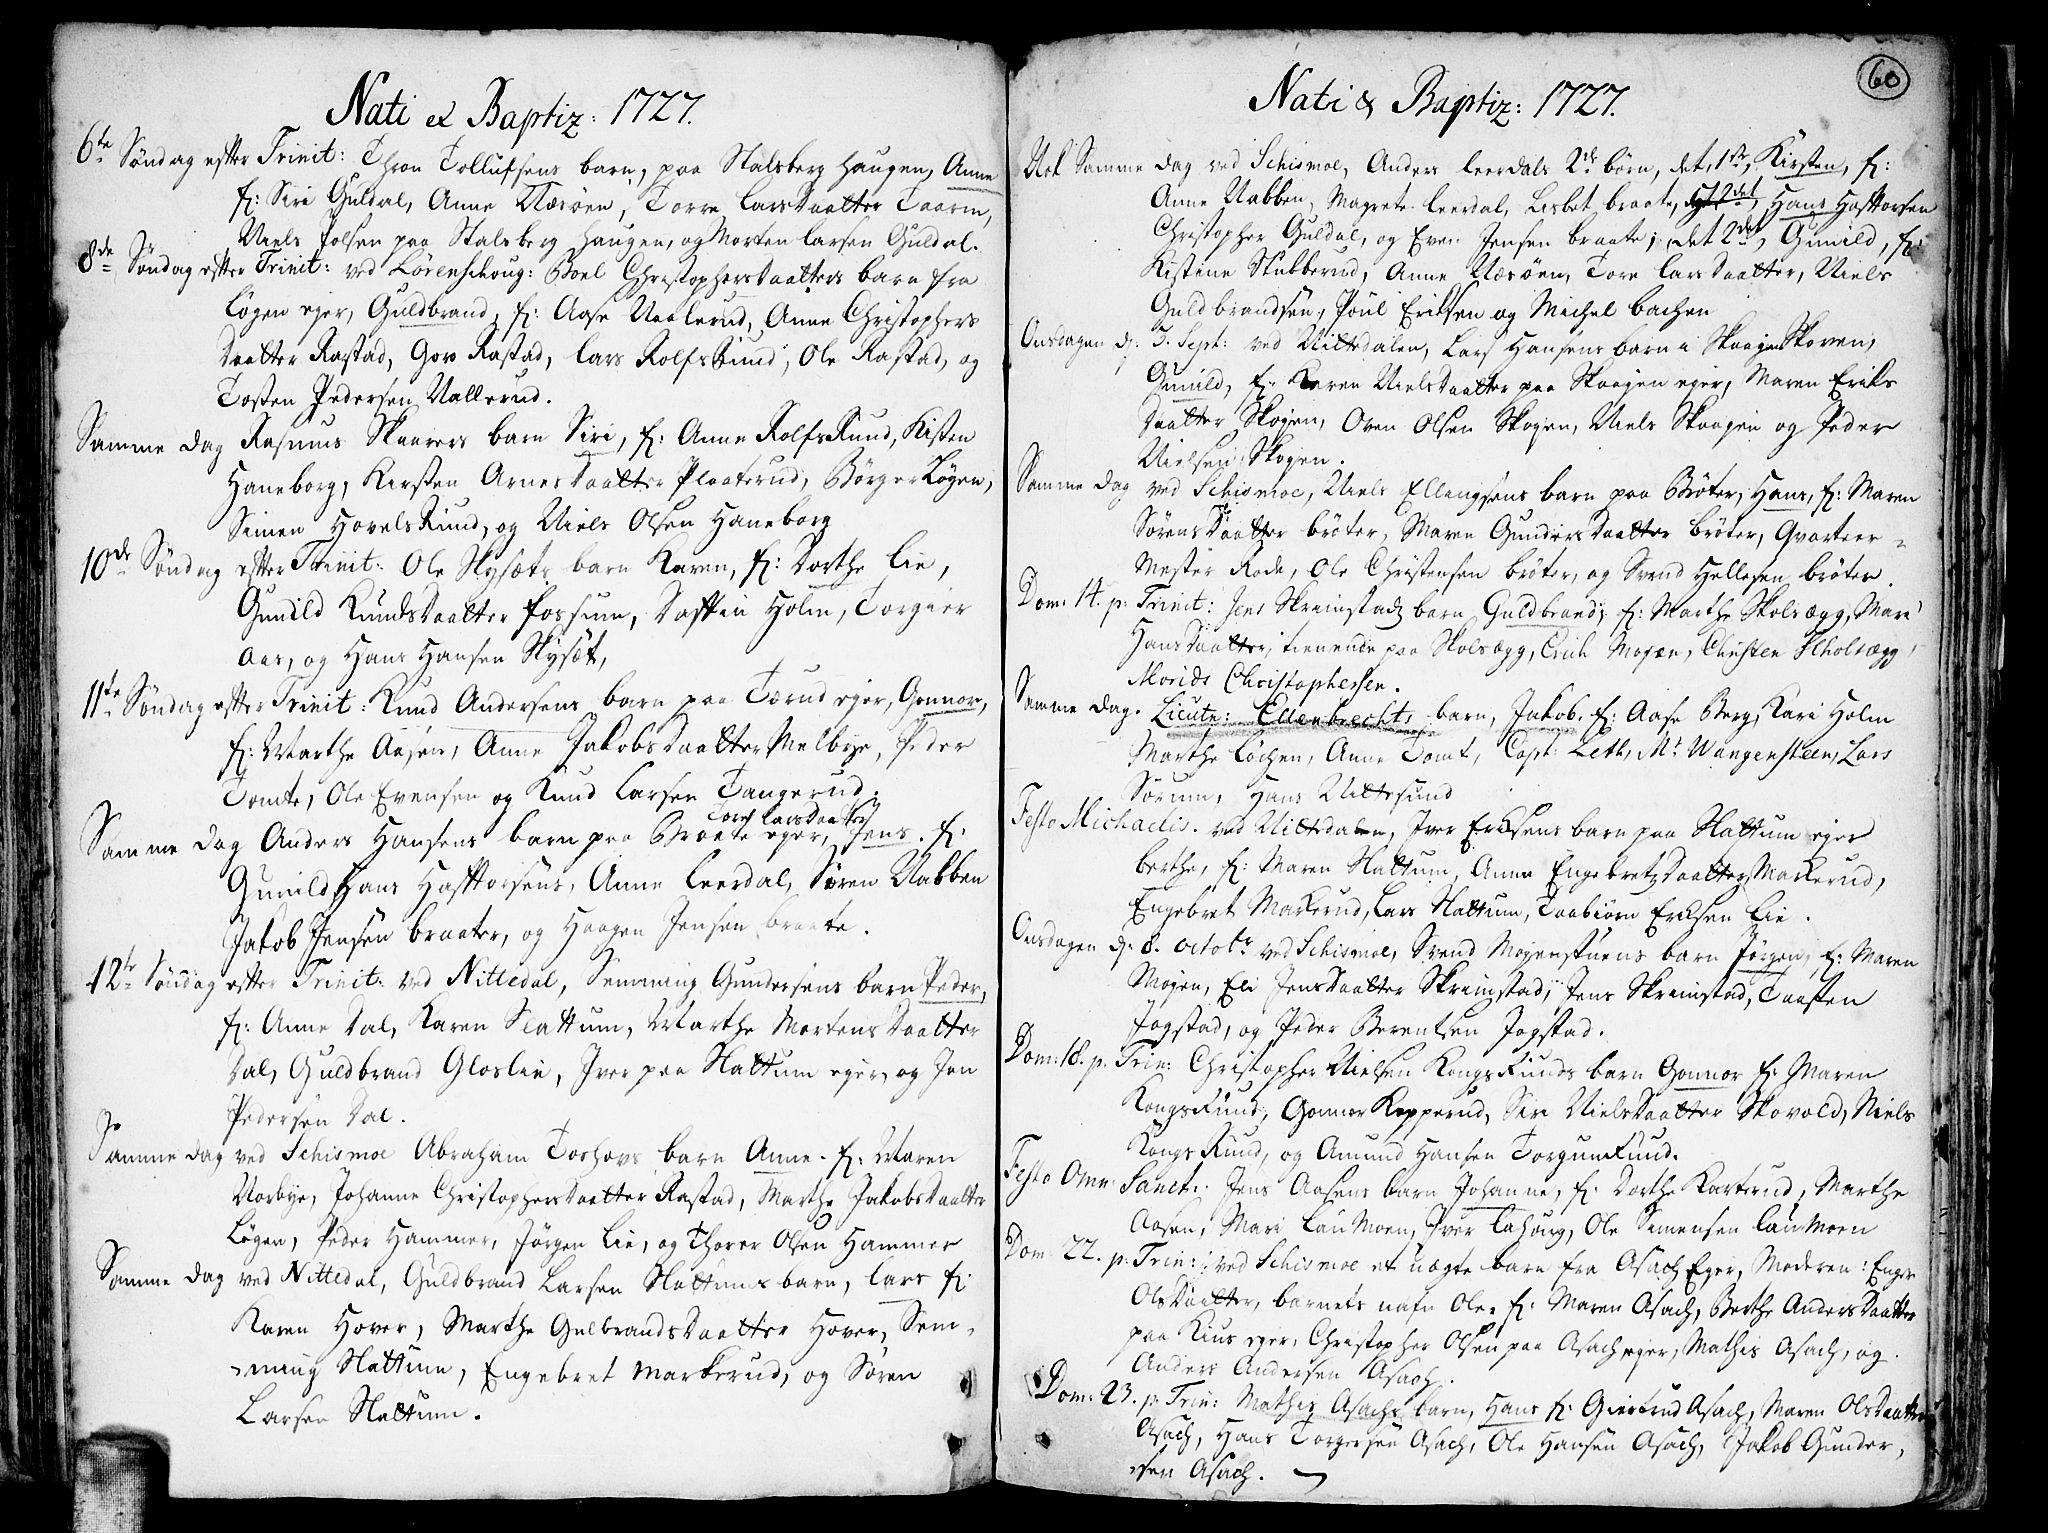 Nati et Baptiz: 1727.
6te Søndag efter Trinit: Thron Tollufsens barn, paa Stalsberg haugen, Anne
f: Siri Guldal, Anne Næsøen, Torre Larsdaatter Taarn,
Niels Polsen paa Stalsberg haugen, og Morten Larsen Guldal.
8de Søndag efter Trinit: ved Lørenschoug: Boel Christophersdaatters barn fra
Løgen eger, Guldbrand, f: Aase Naalerud, Anne Christophers
daatter Rastad, Gov Rastad, Lars Rolfsrund, Ole Rastad, og
Tosten Pedersen Nallerud.
Samme dag Rasmus Skaarers barn Siri, f: Anne RolfsRund, Kisten
Haneborg, Kirsten Arnesdaatter Plaaterud, Børger Løgen,
Simen HovelsRund, og Niels Olsen Haneborg
10de Søndag efter Trinit: Ole Nysæts barn Karen, f: Dorthe Lie,
Gunild Kundsdaatter Fossum, Holm, Torgier
Aas, og Hans Hansen Nysæt,
11te Søndag efter Trinit: Knud Andersens barn paa Tærud eger, Gonnor,
f: Marthe Aasen, Anne Jakobsdaatter Melbye, Peder
Tomte, Ole Evensen og Knud Larsen Tangerud.
Tore Larsdaatter
Samme dag Anders Hansens barn paa Braate eger, Jens. f:
Gunild Hans Hafftorsens, Anne Leerdal, Søren Nabben
Jakob Jensen braater, og Haagen Jensen braate.
12te Søndag efter Trinit: ved Nittedal, Semming Gundersens barn Peder,
f: Anne Dal, Karen Slattum, Marthe Mortensdaatter
Dal, Guldbrand Gloslie, Iver paa Slattum eger, og Jon
Pedersen Dal.
Samme dag ved Schismoe Abraham Toshovs barn Anne. f: Maren
Norbye, Johanne Christophersdaatter Rastad, Marthe Jakobsdaatter
Løgen, Peder Hammer, Jørgen Lie, og Thorer Olsen Hammer
Samme dag ved Nittedal, Guldbrand Larsen Slattums barn, Lars f:
Karen Hover, Marthe Gulbrandsdaatter Hover, Sem-
-ming Slattum, Engebret Markerud, og Søren
Larsen Slattum.
60
Nati & Baptiz: 1727.
Nok Samme dag ved Schismoe, Anders Leerdals 2de børn, det 1ste, Kirsten, f:
Anne Nabben, Magrete Leerdal, Lisbet braate, Hans Hafftorsen
Christopher Guldal, og Even Jensen braate; det 2det, Gunild, f:
Kistine Stubberud, Anne Næsøen, Tore Larsdaatter, Niels
Guldbrandsen, Poul Eriksen og Michel bachen
Onsdagen d: 3. Sept: ved Nittedalen, Lars Hansens barn i Skougen Skoven,
Gunild, f: Karen Nielsdaatter paa Skougen eger, Maren Eriks
daatter Skogen, Oven Olsen Skogen, Niels Skougen og Peder
Nielsen Skogen.
Samme dag ved Schismoe, Niels Ellingsens barn paa Brøter, Hans, f: Maren
Sørensdaatter brøter, Maren Gundersdaatter brøter, Qvarteer-
Mester Rode, Ole Christensen brøter, og Svend Hellesen brøter.
Dom: 14. p: Trinit: Jens Skrimstads barn Guldbrand, f: Marthe Skolsægg, Mari
Hansdaatter, tienende paa Skolsægg, Erich Mosen, Christen Skolsægg
Morids Christophersen.
Samme dag. Lieutn: Ellenbrechts barn, Jakob. f: Aase Berg, Kari Holm
Marthe Løchen, Anne Tomt, Capt: Leth, Mr. Wangensteen, Lars
Sørum, Hans Nittesund
Festo Michaelis. ved Nittedalen, Iver Eriksens barn paa Slattum eger
berthe, f: Maren Slattum, Anne Engebretsdaatter Markerud,
Engebret Markerud, Lars Slattum, Taabiørn Eriksen Lie.
Onsdagen d: 8. octobr ved Schismoe, Svend Mosenstuens barn Jørgen, f: Maren
Mosen, Eli Jensdaatter Skrimstad, Jens Skrimstad, Taasten
Jogstad, og Peder Berentsen Jogstad.
Dom: 18. p: Trin: Christopher Nielsen KongsRunds barn Gonnor f: Maren
KongsRund, Gonnor Kopperud, Siri Nielsdaatter Skovold, Niels
KongsRund, og Amund Hansen TorgumRund.
Festo Omn: Sanct: Jens Aasens barn Johanne, f: Dorthe Karterud, Marthe
Aasen, Mari Lau Moen, Iver Lahoug, Ole Simensen Lau Moen
Dom: 22. p: Trin: ved Schismoe et uægte barn fra Asach Eger, Moderen: Enger
Olsdaatter, barnets nafn Ole, f: Maren Asach, Berthe Andersdaatter
paa Kius eger, Christopher Olsen paa Asach eger, Mathis Asach, og
Anders Andersen Asach.
Dom: 23. p: Trin: Mathis Asachs barn, Hans f: Giertrud Asach, Maren Olsdaatter
Asach, Hans Torgersen Asach, Ole Hansen Asach, Jakob Gunder,
-sen Asach.